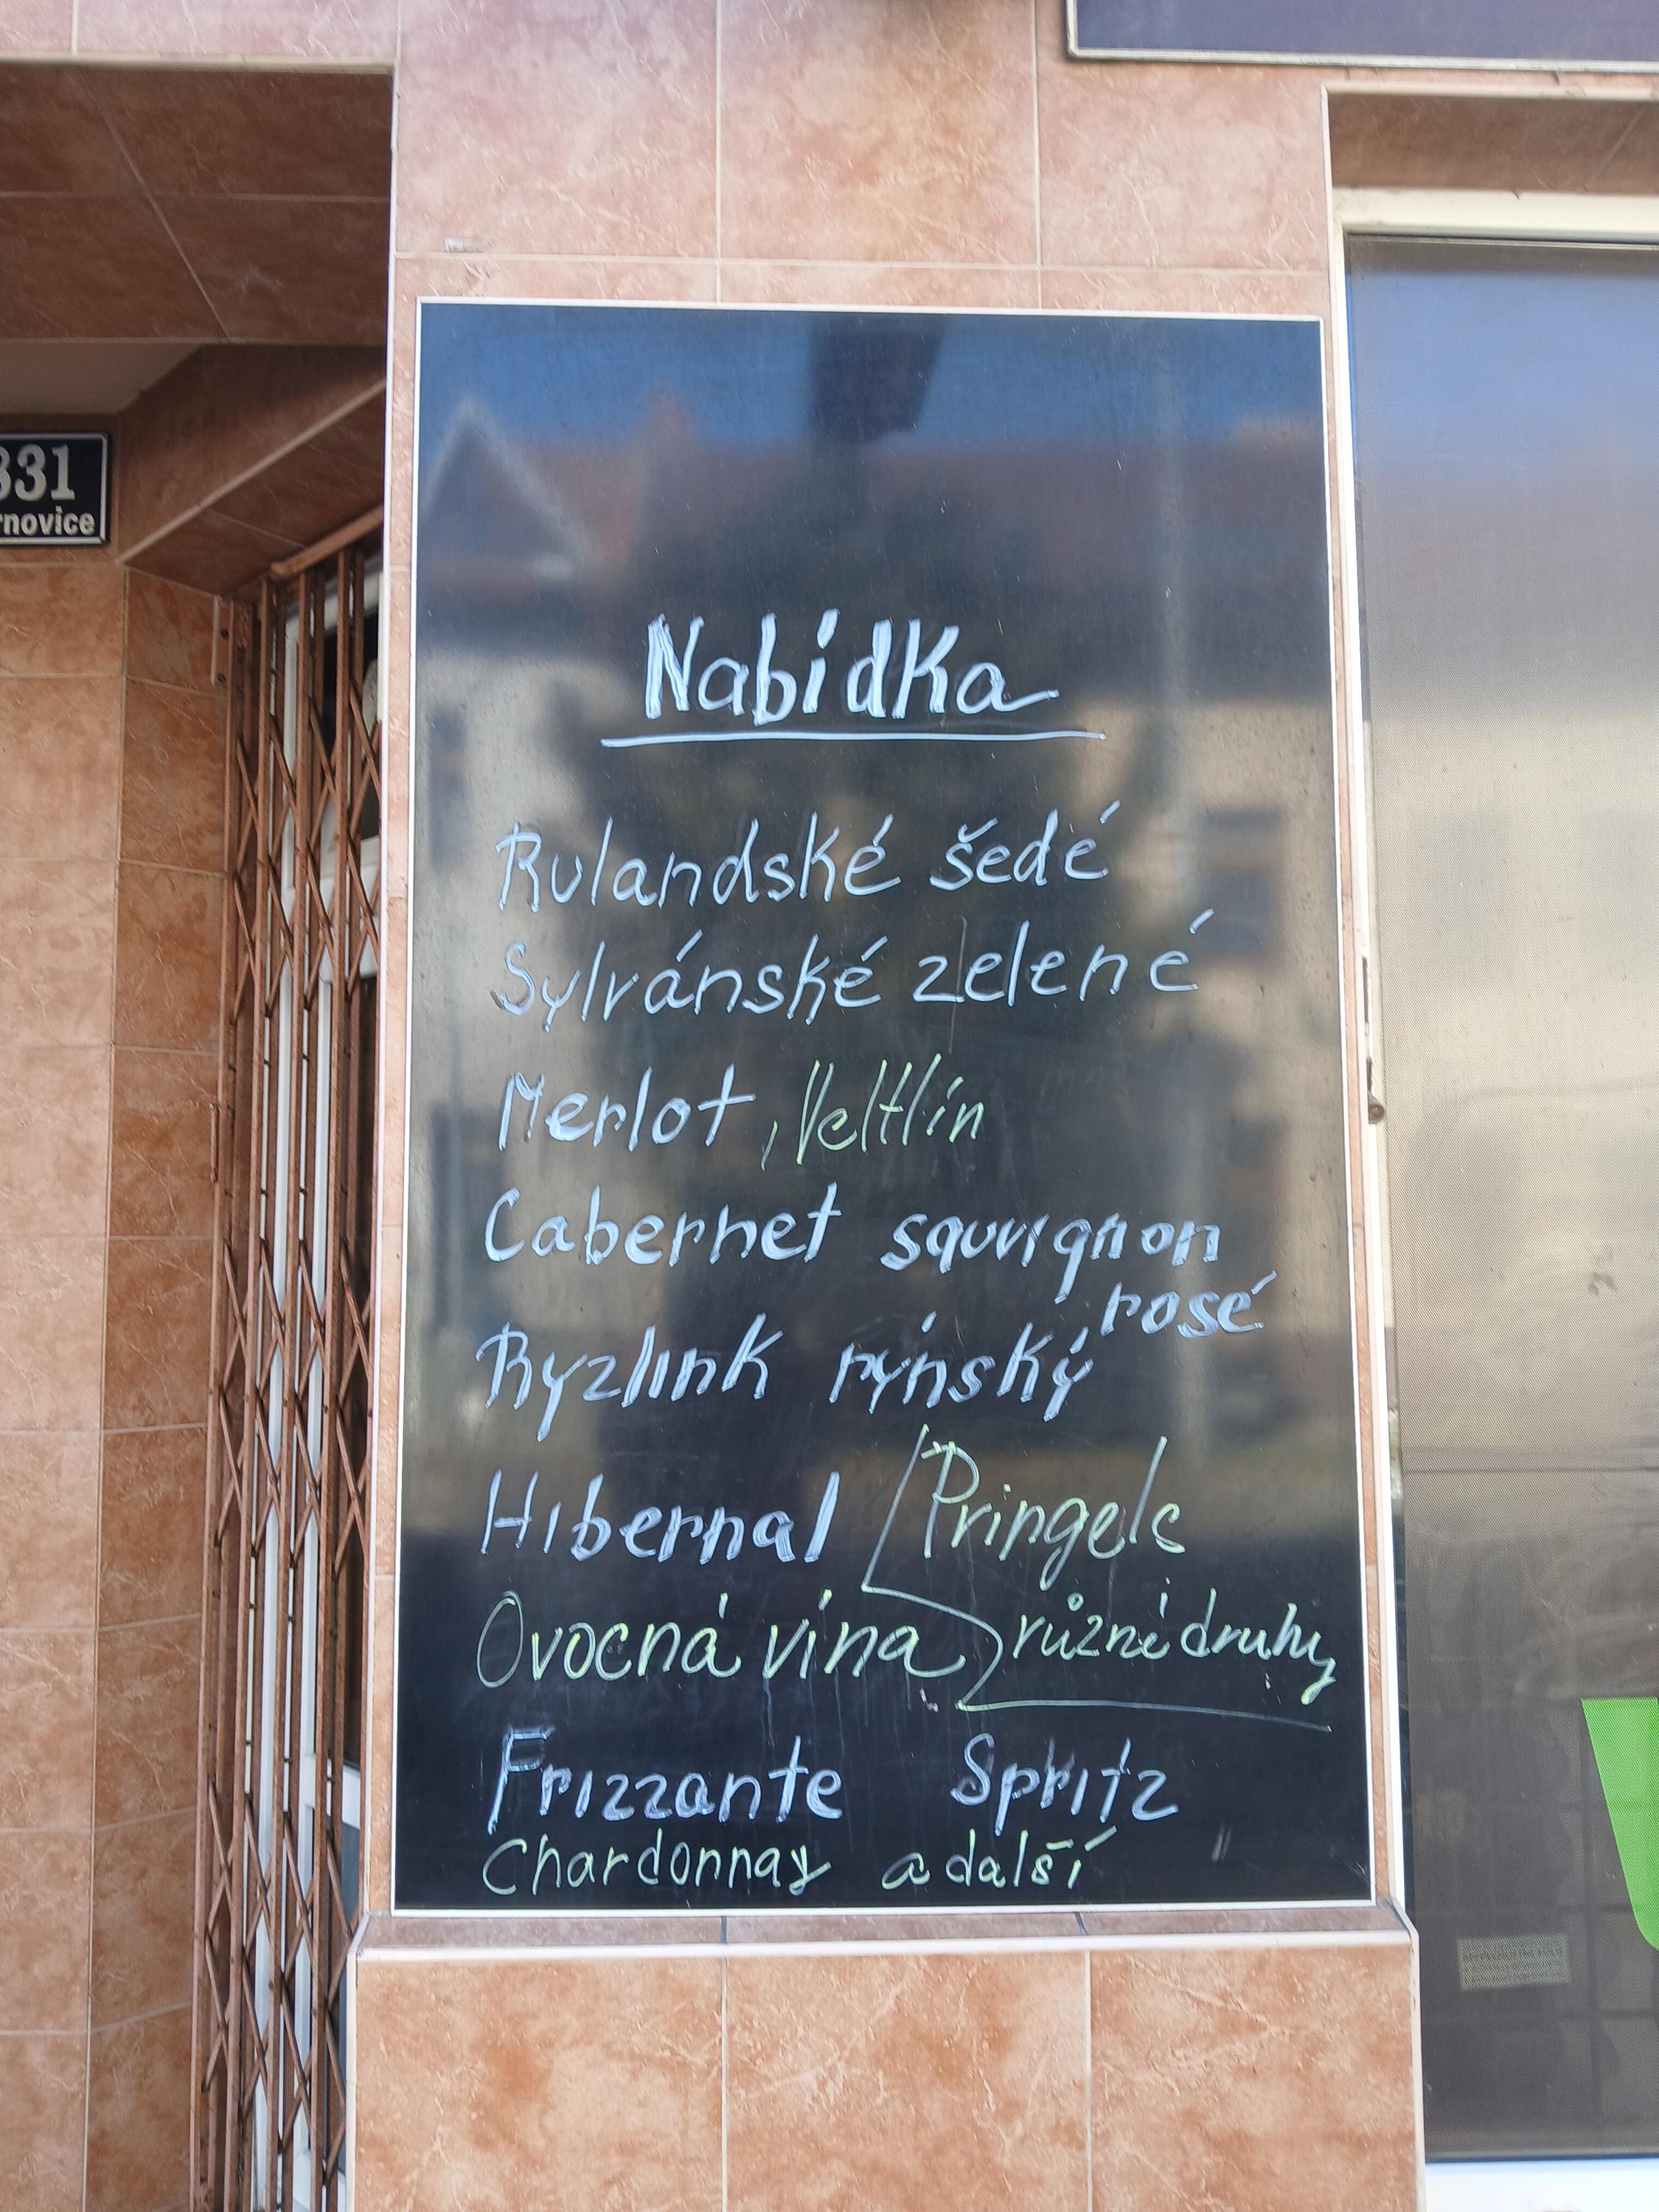 331
rnovice
Nabídka
Rulandské šedé
Sylvánské zelené
Merlot, Veltlín
Cabernet sauvignon
rosé
Ryzlink rýnský
Hibernal
Pringels
Ovocná vína
různé druhy
Frizzante Spritz
Chardonnay a další